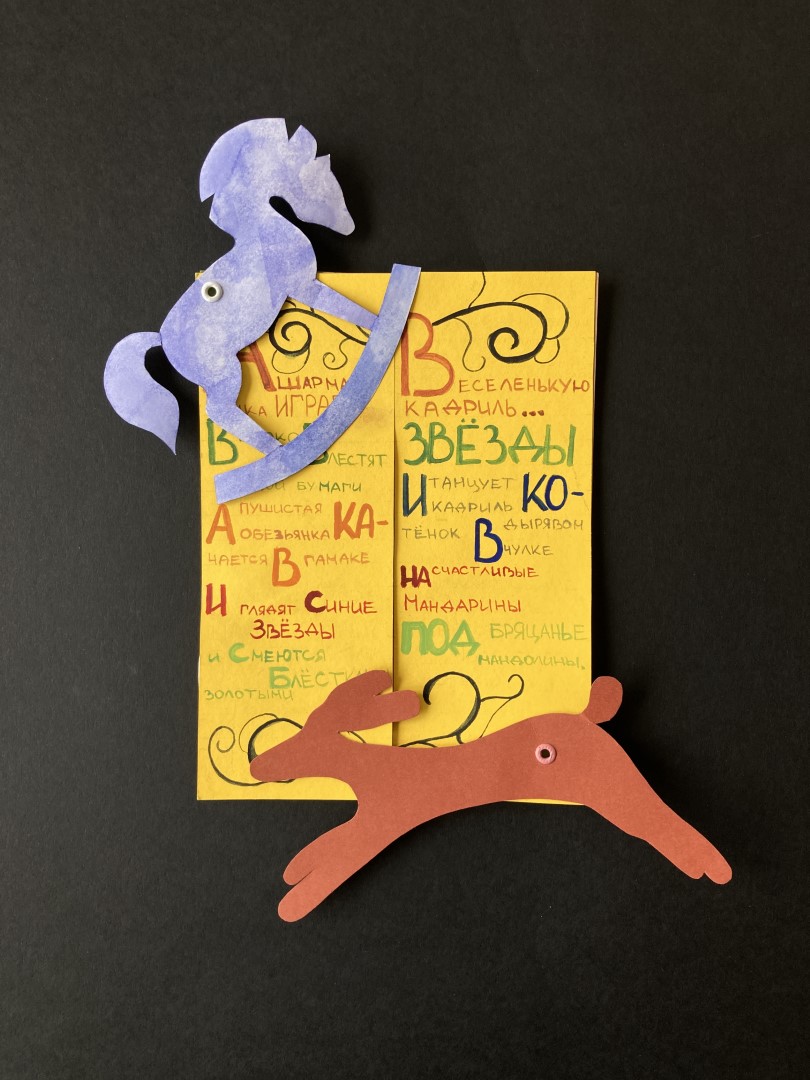 А ШАРМА
В БЛЕСТЯТ
БУМАГИ
А ПУШИСТАЯ
ОБЕЗЬЯНКА КА-
ЧАЕТСЯ В ГАМАКЕ
И ГЛЯДЯТ СИНИЕ
ЗВЁЗДЫ
И СМЕЮТСЯ
ЗОЛОТЫМИ
ВЕСЕЛЕНЬКУЮ
КАДРИЛЬ...
ЗВЁЗДЫ
И ТАНЦУЕТ
КАДРИЛЬ КО-
ТЁНОК В ДЫРЯВОМ
ЧУЛКЕ
НА СЧАСТЛИВЫЕ
МАНДАРИНЫ
ПОД БРЯЦАНЬЕ
МАНДОЛИНЫ.